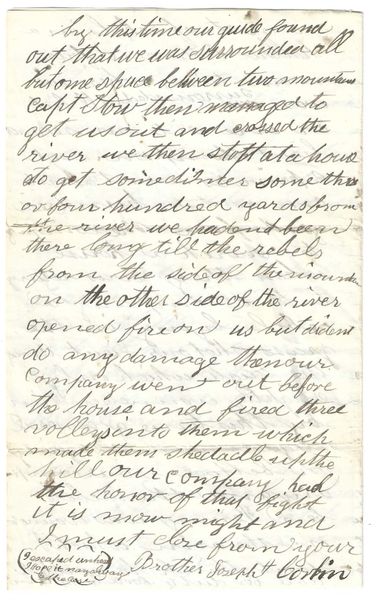 by this time our guide found
out that we was surrounded all
but ome space between two mountains
Capt Stow then managed to
get us out and crossed the
river we then stoft at a house
to get some dinner some three
or four hundred yards from
the river we hadent been
there long till the rebels
from the side of the mountain
on the other side of the river
opened fire on us but dident
do any damage then our
Company went out before
the house and fired three
volleys into them which
made them shedadle up the
hill our company had
the honor of that fight
it is now night and
I must close from your
Brother Joseph H Corbin
I escaped unhurt
I hope it may always
be the case